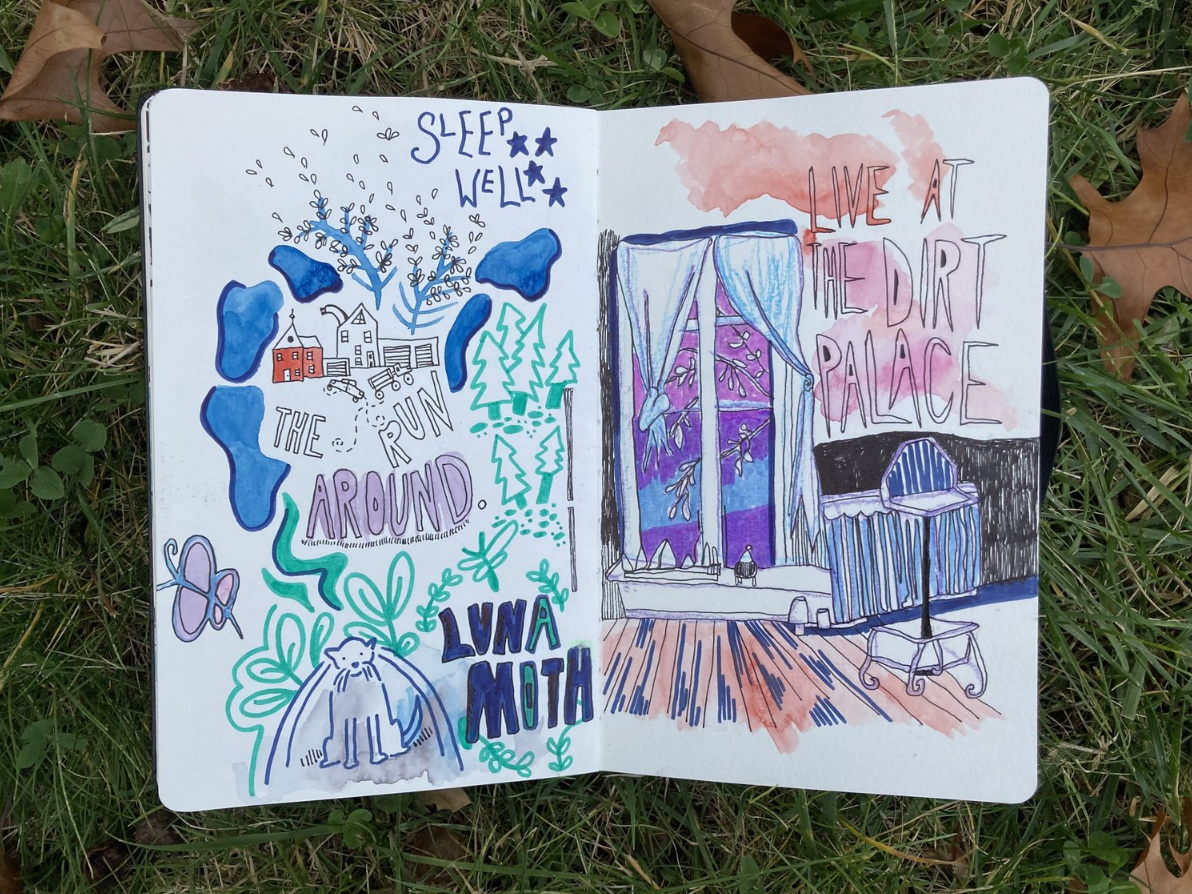 SLEEP
WELL
THE RUN
AROUND.
LUNA
MOTH
LIVE AT
THE DIRT
PALACE